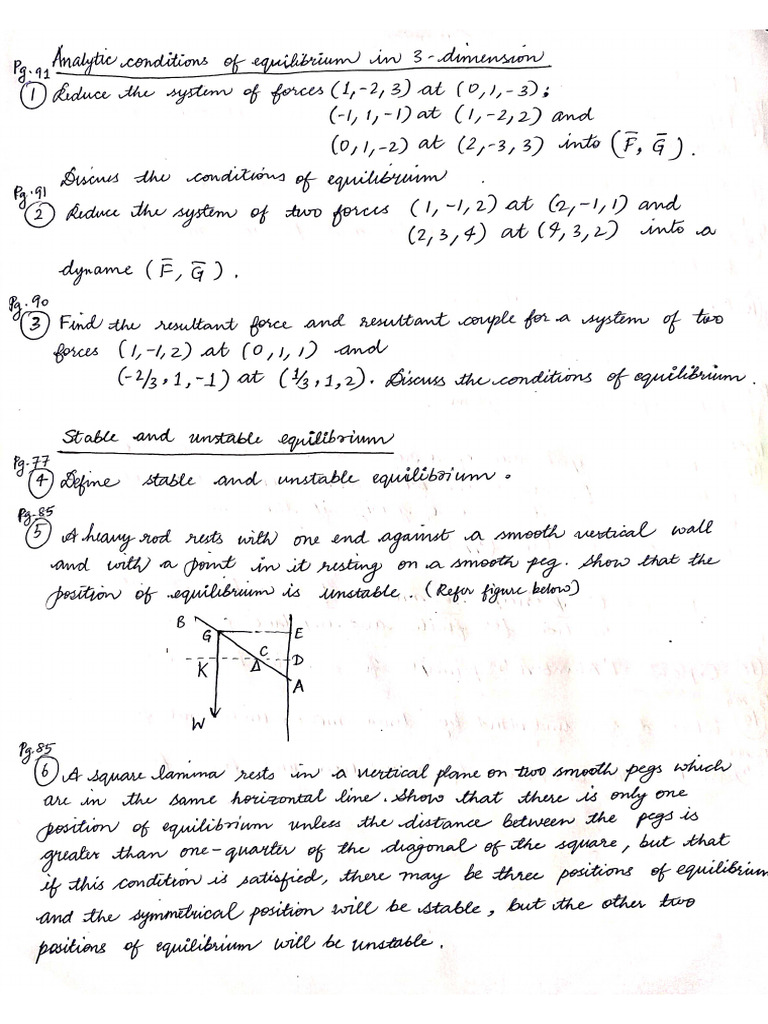 Analytic conditions of equilibrium in 3-dimension
Pg.91
① Reduce the system of forces (1,-2,3) at (0,1,-3);
(-1,1,-1) at (1,-2,2) and
(0,1,-2) at (2,-3,3) into (F̄, Ḡ).
Discuss the conditions of equilibrium.
Pg.91
② Reduce the system of two forces (1,-1,2) at (2,-1,1) and
(2,3,4) at (4,3,2) into a
dyname (F̄, Ḡ).
Pg.90
③ Find the resultant force and resultant couple for a system of two
forces (1,-1,2) at (0,1,1) and
(-2/3,1,-1) at (1/3,1,2). Discuss the conditions of equilibrium.
Stable and unstable equilibrium
Pg.77
④ Define stable and unstable equilibrium.
Pg.85
⑤ A heavy rod rests with one end against a smooth vertical wall
and with a point in it resting on a smooth peg. Show that the
position of equilibrium is unstable. (Refer figure below)
B
G E
C
K D
A
W
Pg.85
⑥ A square lamina rests in a vertical plane on two smooth pegs which
are in the same horizontal line. Show that there is only one
position of equilibrium unless the distance between the pegs is
greater than one-quarter of the diagonal of the square, but that
if this condition is satisfied, there may be three positions of equilibrium
and the symmetrical position will be stable, but the other two
positions of equilibrium will be unstable.